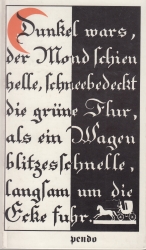 Dunkel wars,
der Mond schien
helle, schneebedeckt
die grüne Flur,
als ein Wagen
blitzesschnelle,
langsam um die
Ecke fuhr.
pendo